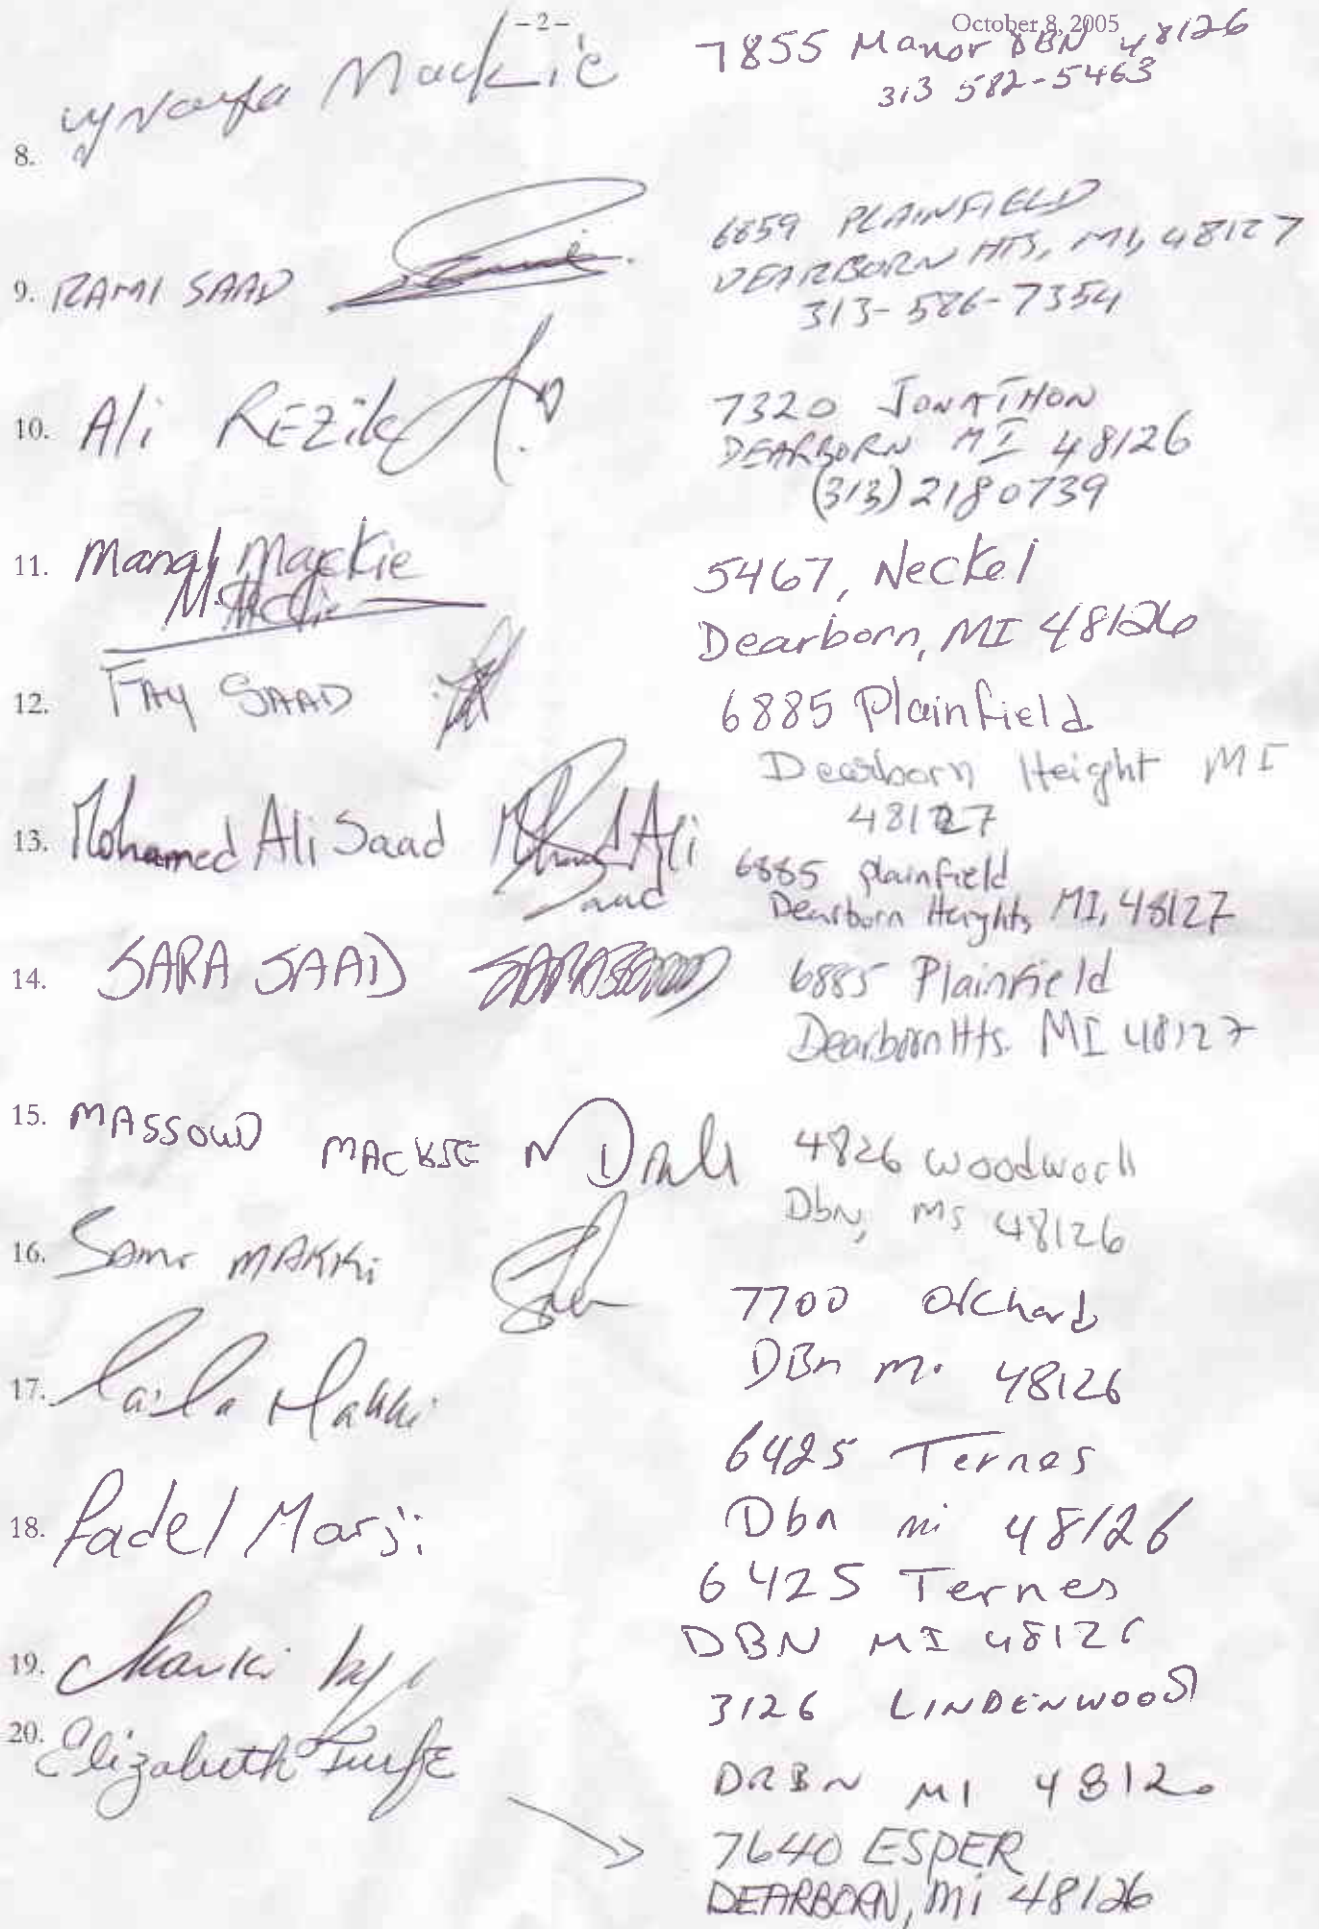 -2-
October 8, 2005
8. Mackie
7855 Manor DBN 48126
313 582-5463
9. RAMI SAAD
6859 PLAINFIELD
DEARBORN HTS, MI, 48127
313-586-7354
10. Ali REZik
7320 JONATHON
DEARBORN MI 48126
(313) 2180739
11. Manal Mackie
M. Mackie
5467, Neckel
Dearborn, MI 48126
12. FAY SAAD
6885 Plainfield
Dearborn Height MI
48127
13. Mohamed Ali Saad Mohamed Ali
Saad
6885 plainfield
Dearborn Heights MI, 48127
14. SARA SAAD
6885 Plainfield
Dearborn Hts. MI 48127
15. MASSOUD MACKIE
4826 woodworth
Dbn, MI 48126
16. Sami MAKKi
7700 Orchard
DBn Mi 48126
17. Laila Makki
6425 Ternes
Dbn mi 48126
18. fadel Marji
6425 Ternes
DBN MI 48126
19.
3126 LINDENWOOD
DRBN MI 48120
20. Elizabeth Turfe
7640 ESPER
DEARBORN, Mi 48126